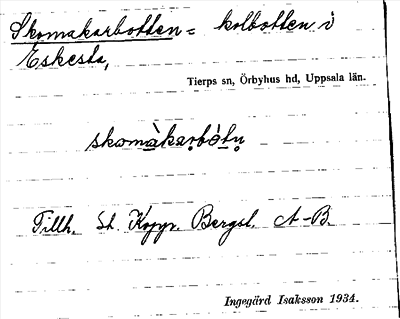 Skomakarbotten = kolbotten i
Eskesta,
Tierps sn, Örbyhus hd, Uppsala län.
skomàkaṛbótṇ
Tillh. St. Koppr. Bergsl. A-B.
Ingegärd Isaksson 1934.